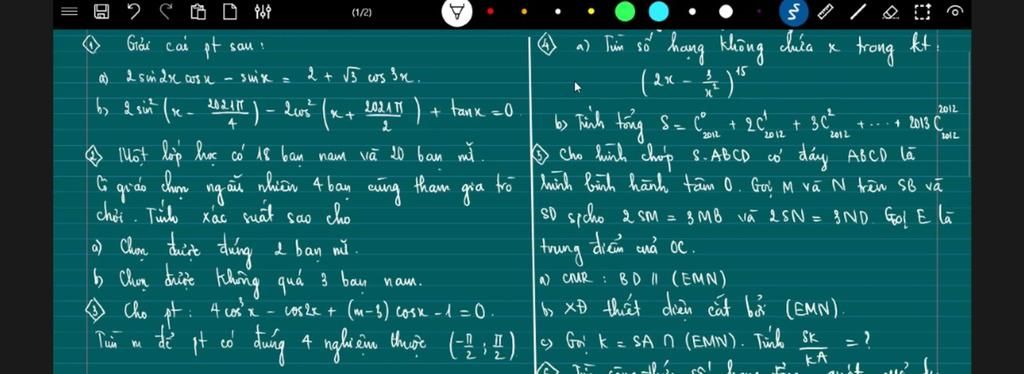 (1/2)
① Giải các pt sau:
a) 2 sin2x cosx - sinx = 2 + √3 cos3x.
b) 2 sin²(x - 2021π/4) - 2cos²(x + 2021π/2) + tanx = 0
② Một lớp học có 18 bạn nam và 20 bạn nữ.
Cô giáo chọn ngẫu nhiên 4 bạn cùng tham gia trò
chơi. Tính xác suất sao cho
a) Chọn được đúng 2 bạn nữ.
b) Chọn được không quá 3 bạn nam.
③ Cho pt: 4cos³x - cos2x + (m-3) cosx - 1 = 0.
Tìm m để pt có đúng 4 nghiệm thuộc (-π/2; π/2)
④ a) Tìm số hạng không chứa x trong kt:
(2x - 3/x²)¹⁵
b) Tính tổng S = C⁰₂₀₁₂ + 2C¹₂₀₁₂ + 3C²₂₀₁₂ + ... + 2013 C²⁰¹²₂₀₁₂
⑤ Cho hình chóp S.ABCD có đáy ABCD là
hình bình hành tâm O. Gọi M và N trên SB và
SD s/cho 2SM = 3MB và 2SN = 3ND. Gọi E là
trung điểm của OC.
a) CMR: BD // (EMN)
b) XĐ thiết diện cắt bởi (EMN).
c) Gọi K = SA ∩ (EMN). Tính SK/KA = ?